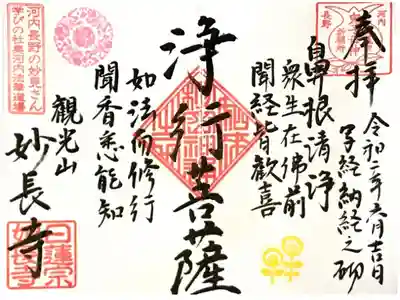 奉拝
令和二年六月吉日
写経納経之砌
鼻根清浄
衆生在佛前
聞経皆歓喜
浄行菩薩
如法而修行
聞香悉能知
観光山
妙長寺
河内長野の妙見さん
学びの社奥河内法華道場
日蓮宗
妙長寺
河内
長野